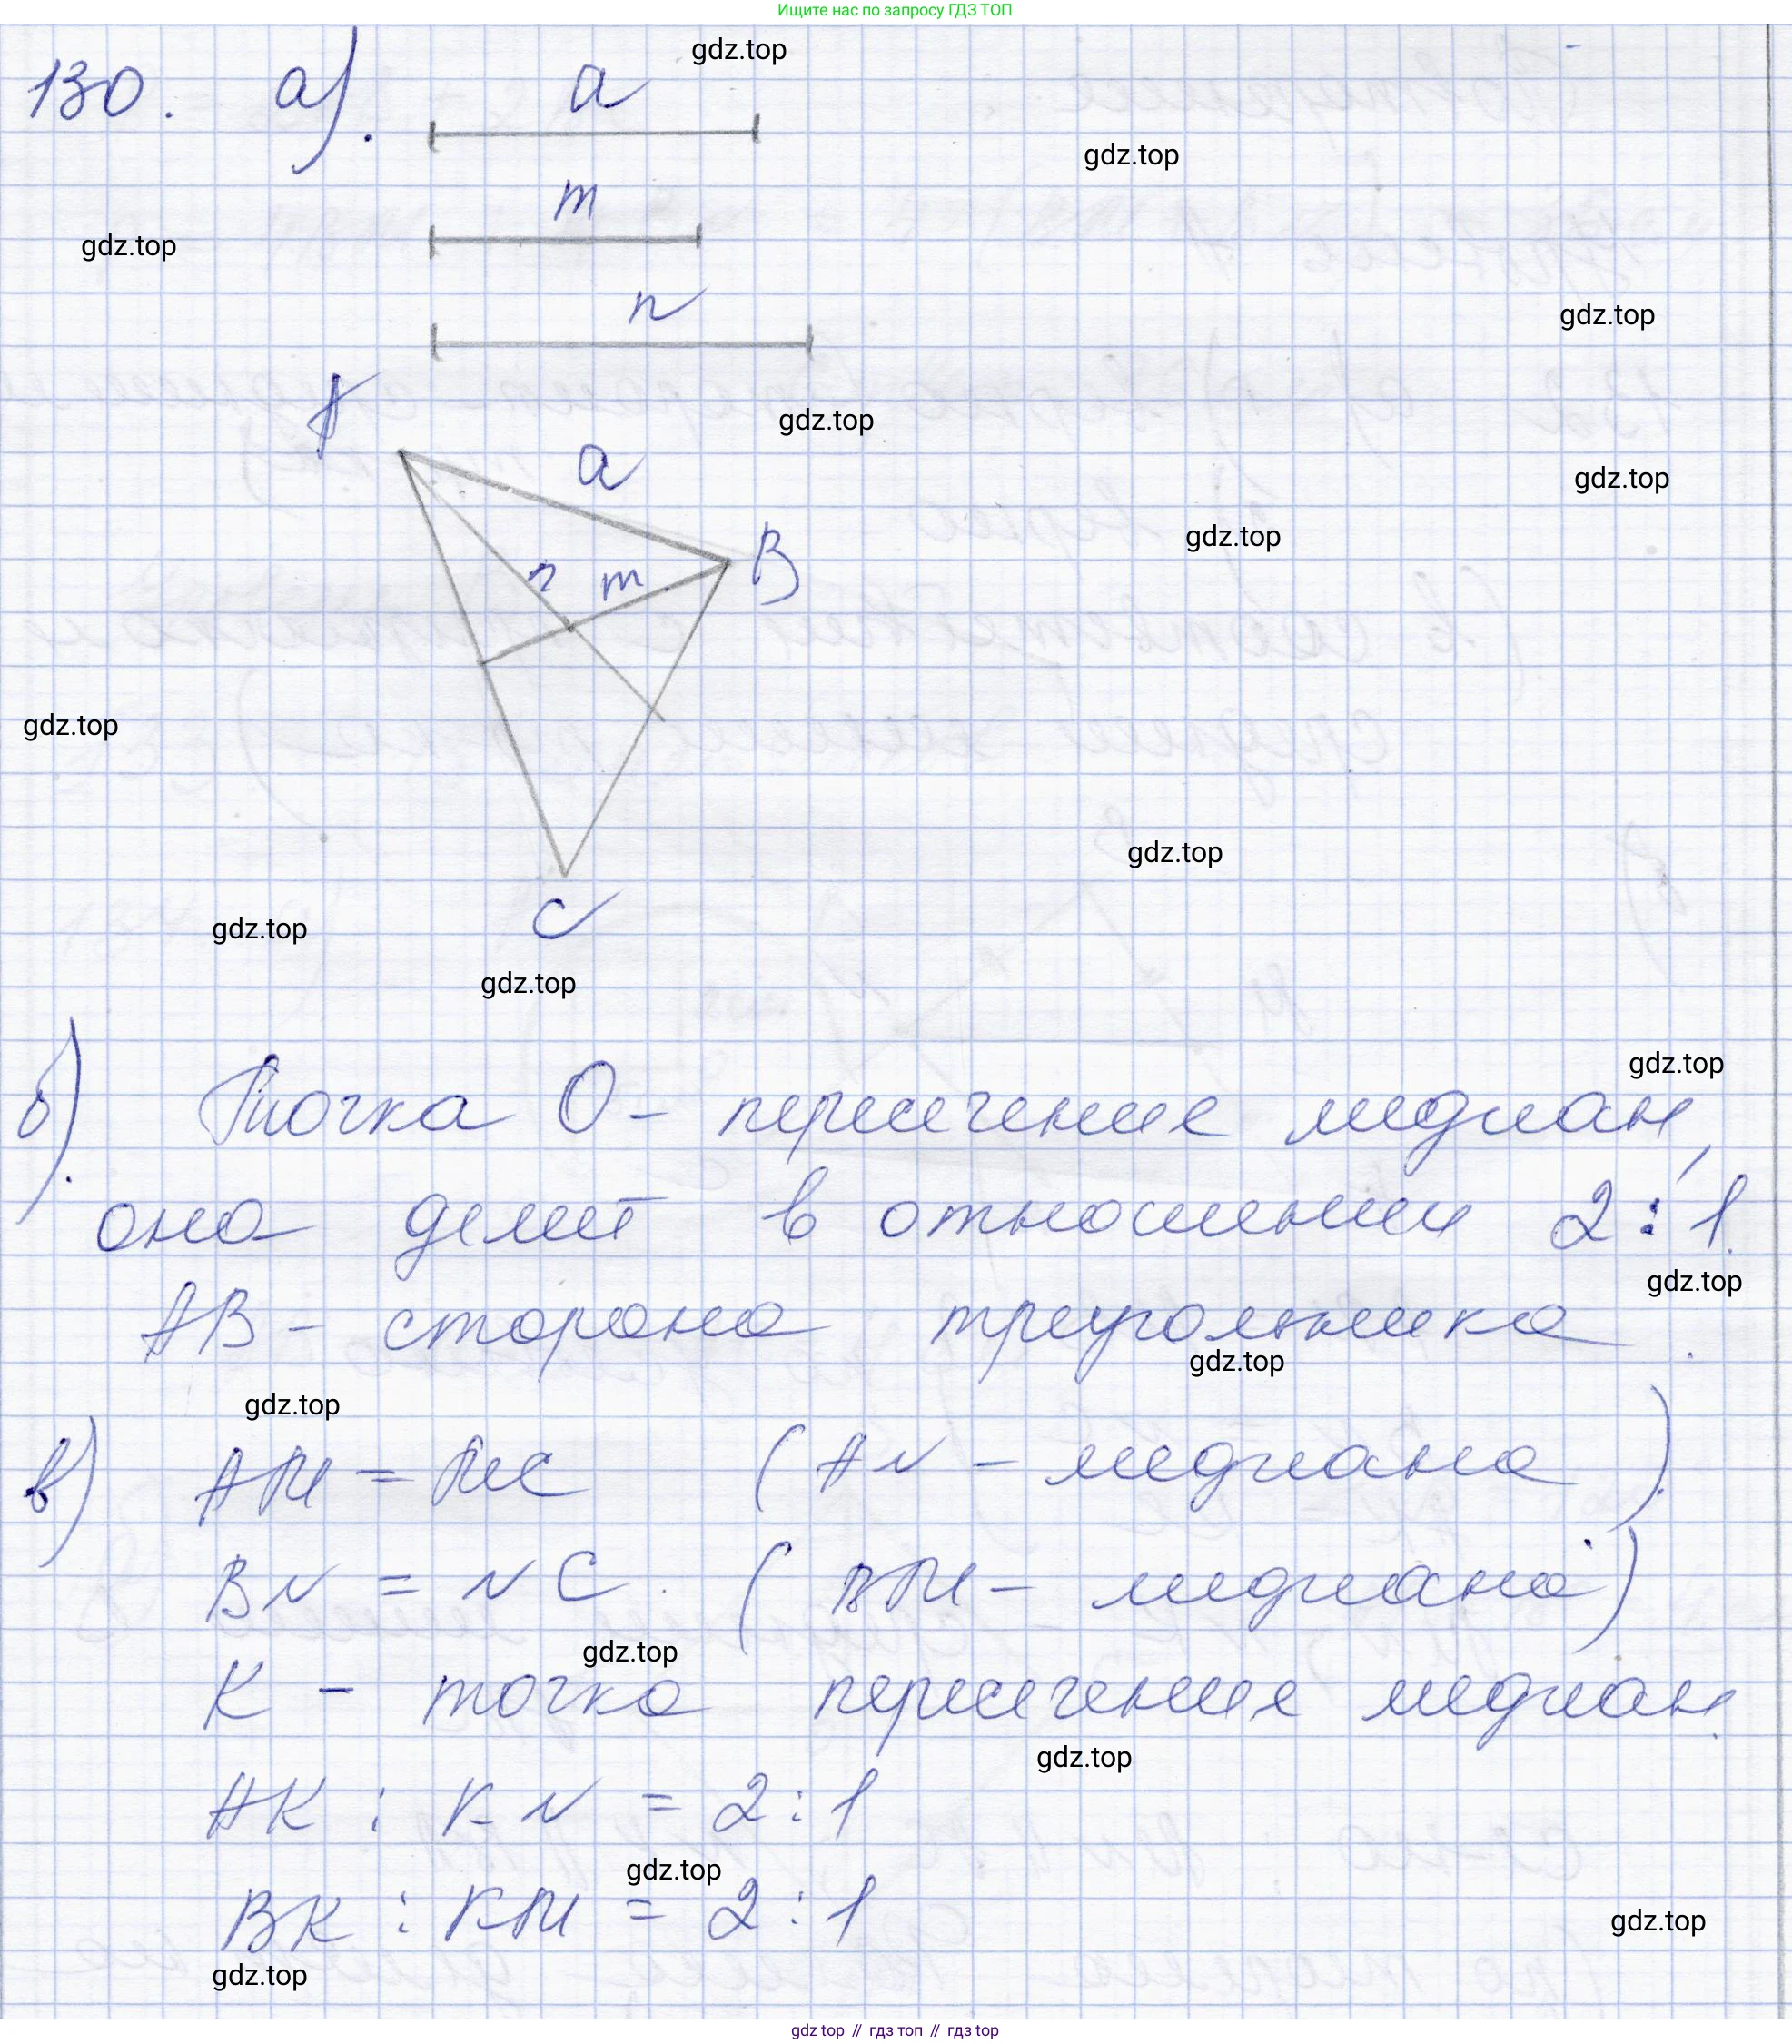 Ищите нас по запросу ГДЗ ТОП
gdz.top
130. а). a
gdz.top
m
gdz.top
n
gdz.top
A
gdz.top
a
gdz.top
gdz.top
B
n m
gdz.top
gdz.top
gdz.top
C
gdz.top
gdz.top
б). Точка O - пересечение медиан,
она делит в отношении 2:1.
gdz.top
AB - сторона треугольника.
gdz.top
gdz.top
в) AM = MC (AN - медиана).
BN = NC. (BM - медиана)
gdz.top
K - точка пересечение медиан.
gdz.top
AK : KN = 2:1
gdz.top
BK : KM = 2:1
gdz.top
gdz.top
gdz.top // гдз топ // гдз top